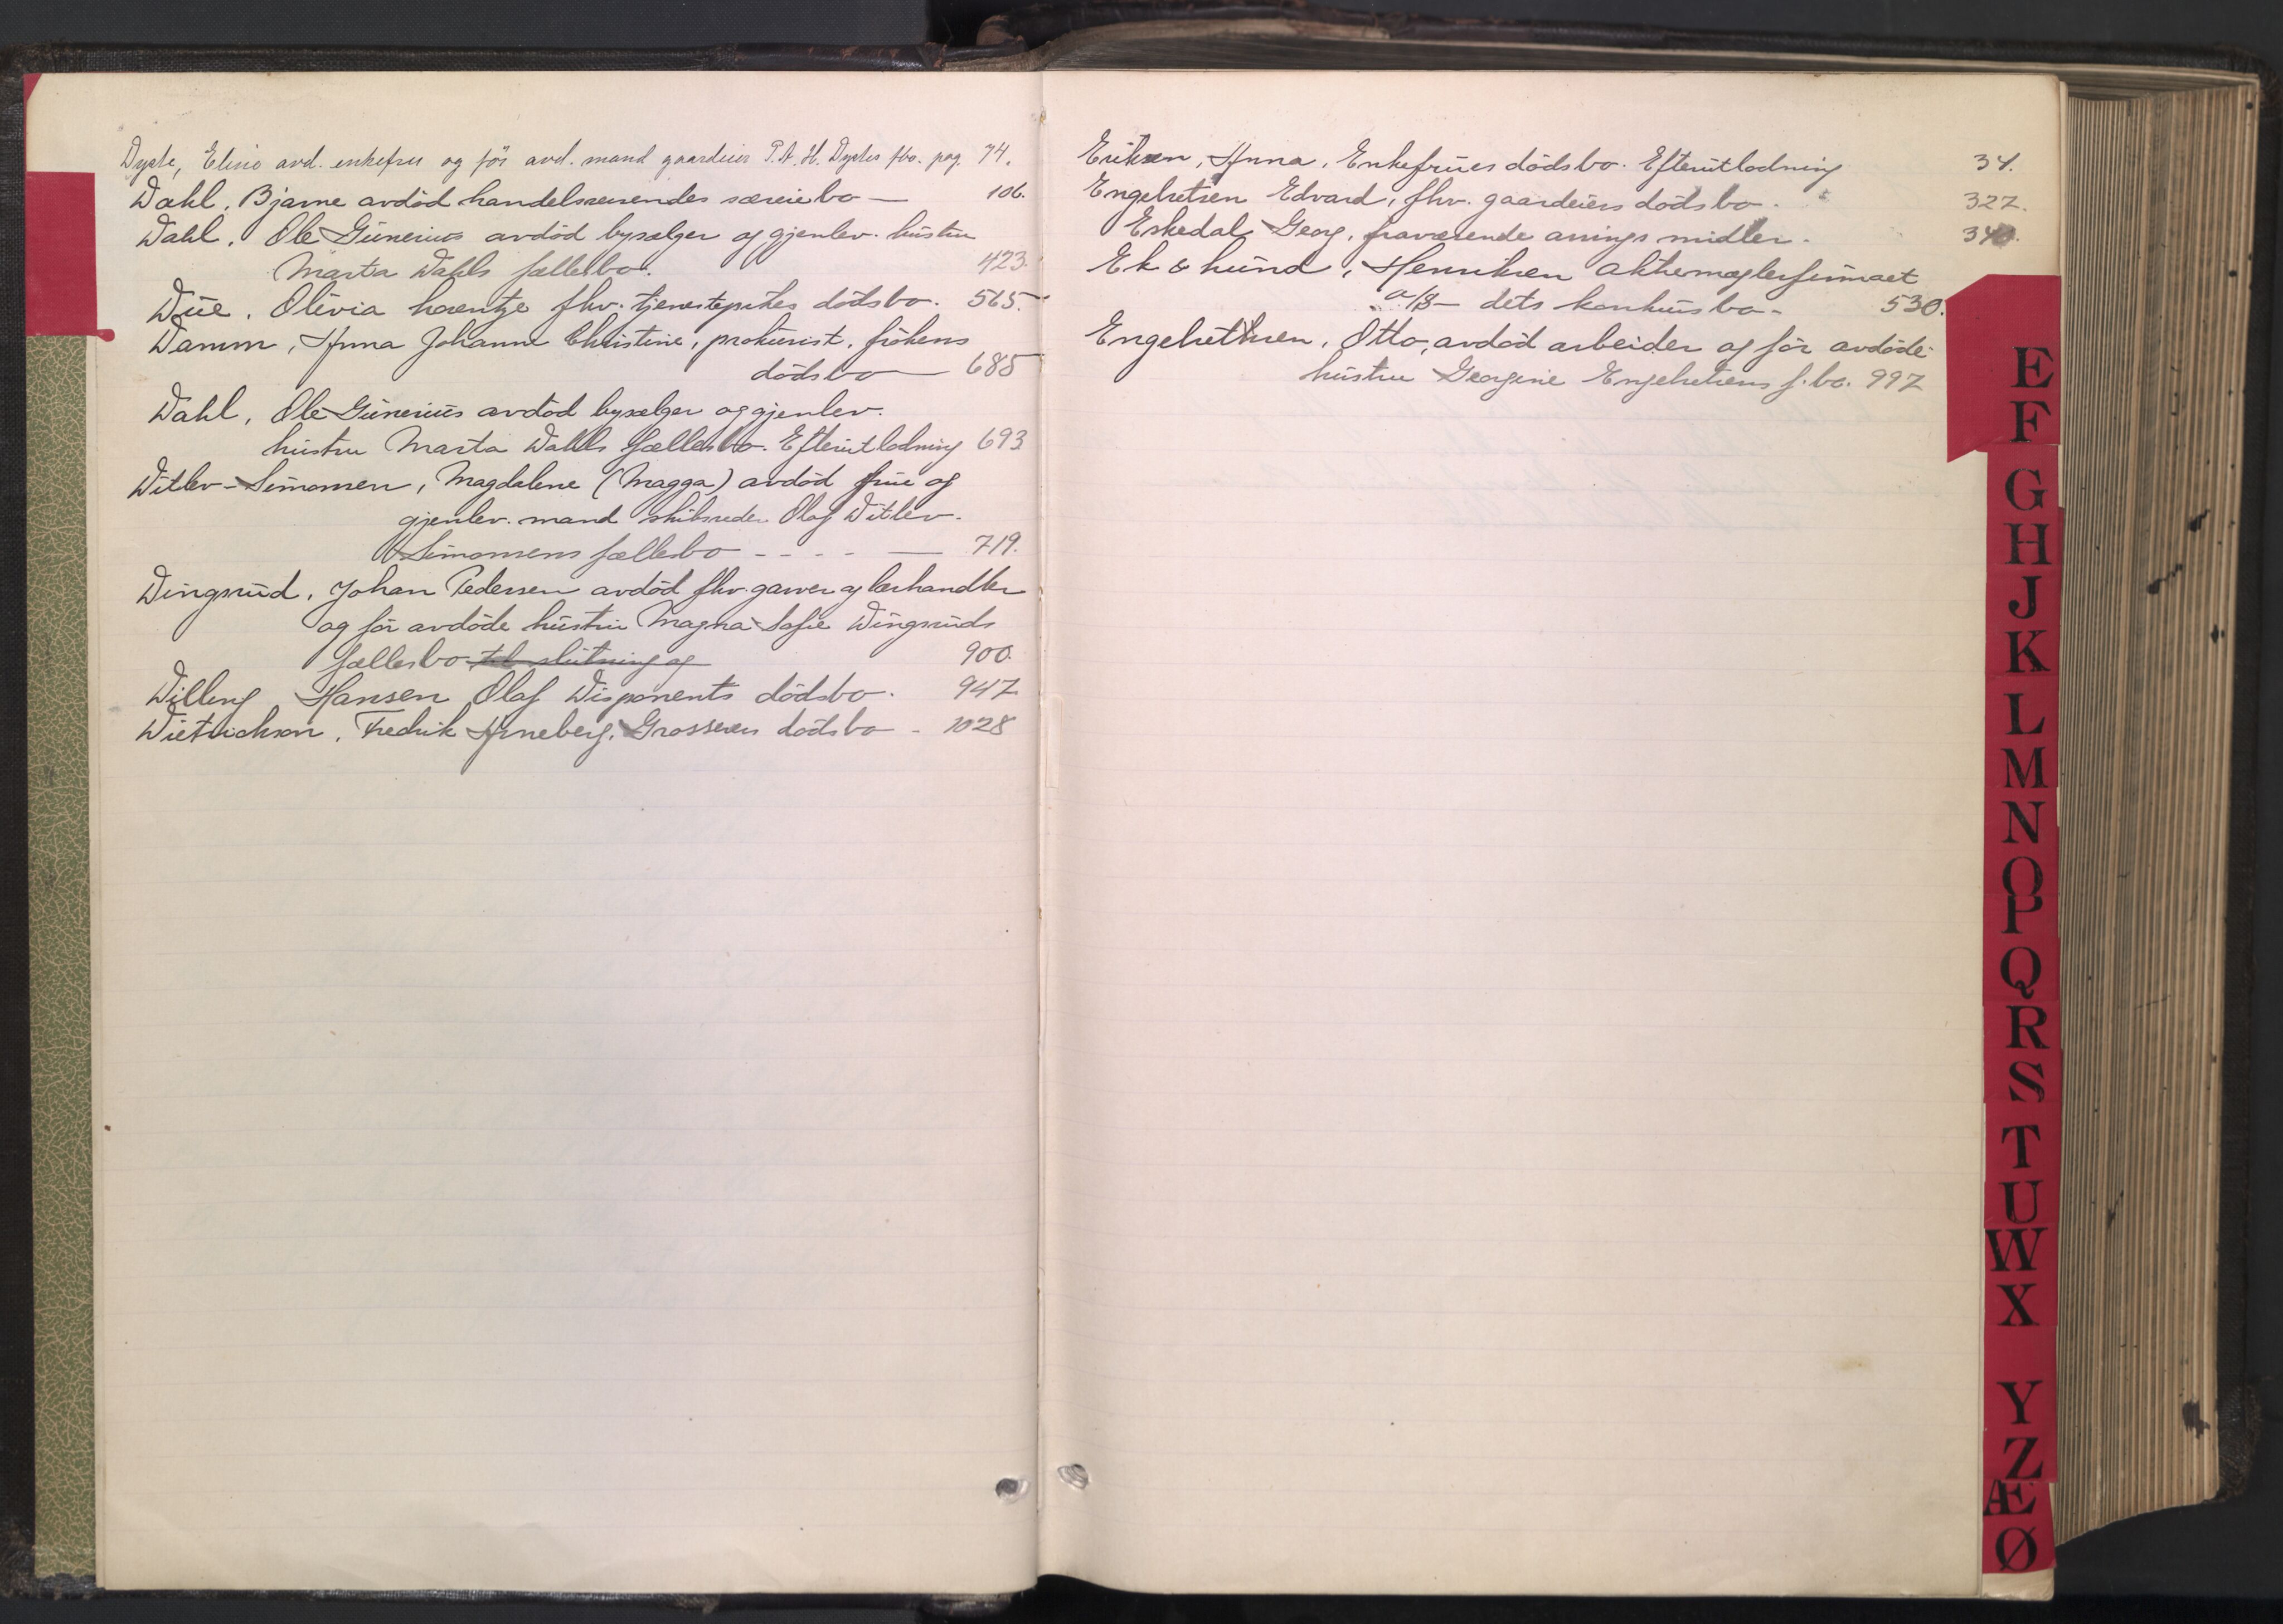 Dyste, Elise avd. enkefru og før avd. mand gaardeier P.A.H. Dystes fbo. pag. 74.
Dahl, Bjarne avdöd handelsreisendes særeiebo — 106.
Dahl, Ole Gunerius avdöd bysælger og gjenlev. hustru
Marta Dahls fællesbo. 423.
Due, Olivia fhv. tjenestepikes dödsbo. 565.
Damm, Anna Johanne Christine, prokurist, frökens
dödsbo — 685
Dahl, Ole Gunerius avdöd bysælger og gjenlev.
hustru Marta Dahls fællesbo. Efterutlodning 693
Ditlev-Simonsen, Magdalene (Magga) avdöd frue og
gjenlev. mand skibsreder Olaf Ditlev-
Simonsens fællesbo - - - - — 719.
Dingsrud, Johan Pedersen avdöd fhv. garver og lærhandler
og för avdöde hustru Magna Sofie Dingsruds
fællesbo til slutning og 900.
Dilling Hansen Olaf Disponents dödsbo. 947
Dietrichson, Fredrik Arneberg, Grosserers dödsbo - 1028
Eriksen, Anna, Enkefrues dödsbo. Efterutlodning 34.
Engebretsen Edvard, fhv. gaardeiers dödsbo. 327.
Eskedal, Georg, fraværende arvings midler. 340.
Ek & Lund, Henriksen aktiemæglerfirmaet
A/S — dets konkursbo - 530.
Engebrethsen, Otto, avdöd arbeider og för avdöde
hustru Georgine Engebretsens f.bo. 997
E
F
G
H
J
K
L
M
N
O
P
Q
R
S
T
U
W
X
Y
Z
Æ
Ø